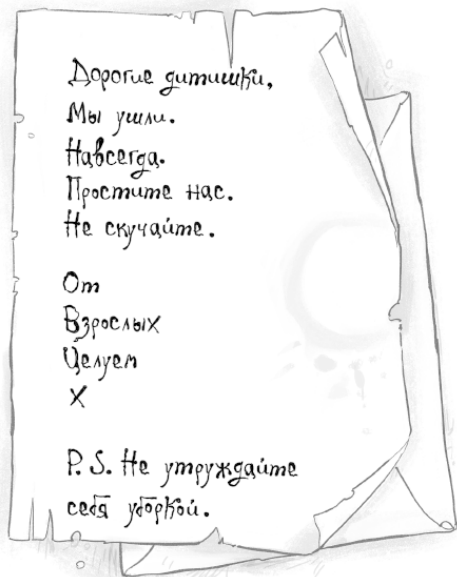 Дорогие дитишки,
Мы ушли.
Навсегда.
Простите нас.
Не скучайте.
От
Взрослых
Целуем
X
P.S. Не утруждайте
себя уборкой.